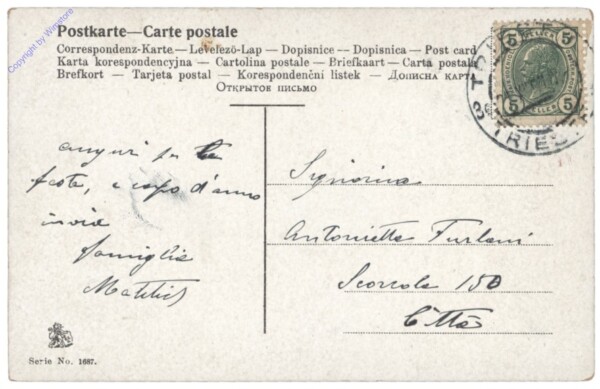 Copyright by Winstore
Postkarte — Carte postale
Correspondenz-Karte — Levelező-Lap — Dopisnice — Dopisnica — Post card
Karta korespondencyjna — Cartolina postale — Briefkaart — Carta postala
Brefkort — Tarjeta postal — Korespondenční listek — Дописна карта
Открытое письмо
5 5
5 5
HELLER
TRIEST
auguri per le
feste, e capo d'anno
invia
famiglia
Signorina
Antonietta Furlani
Scorcola 150
Città
Serie No. 1687.